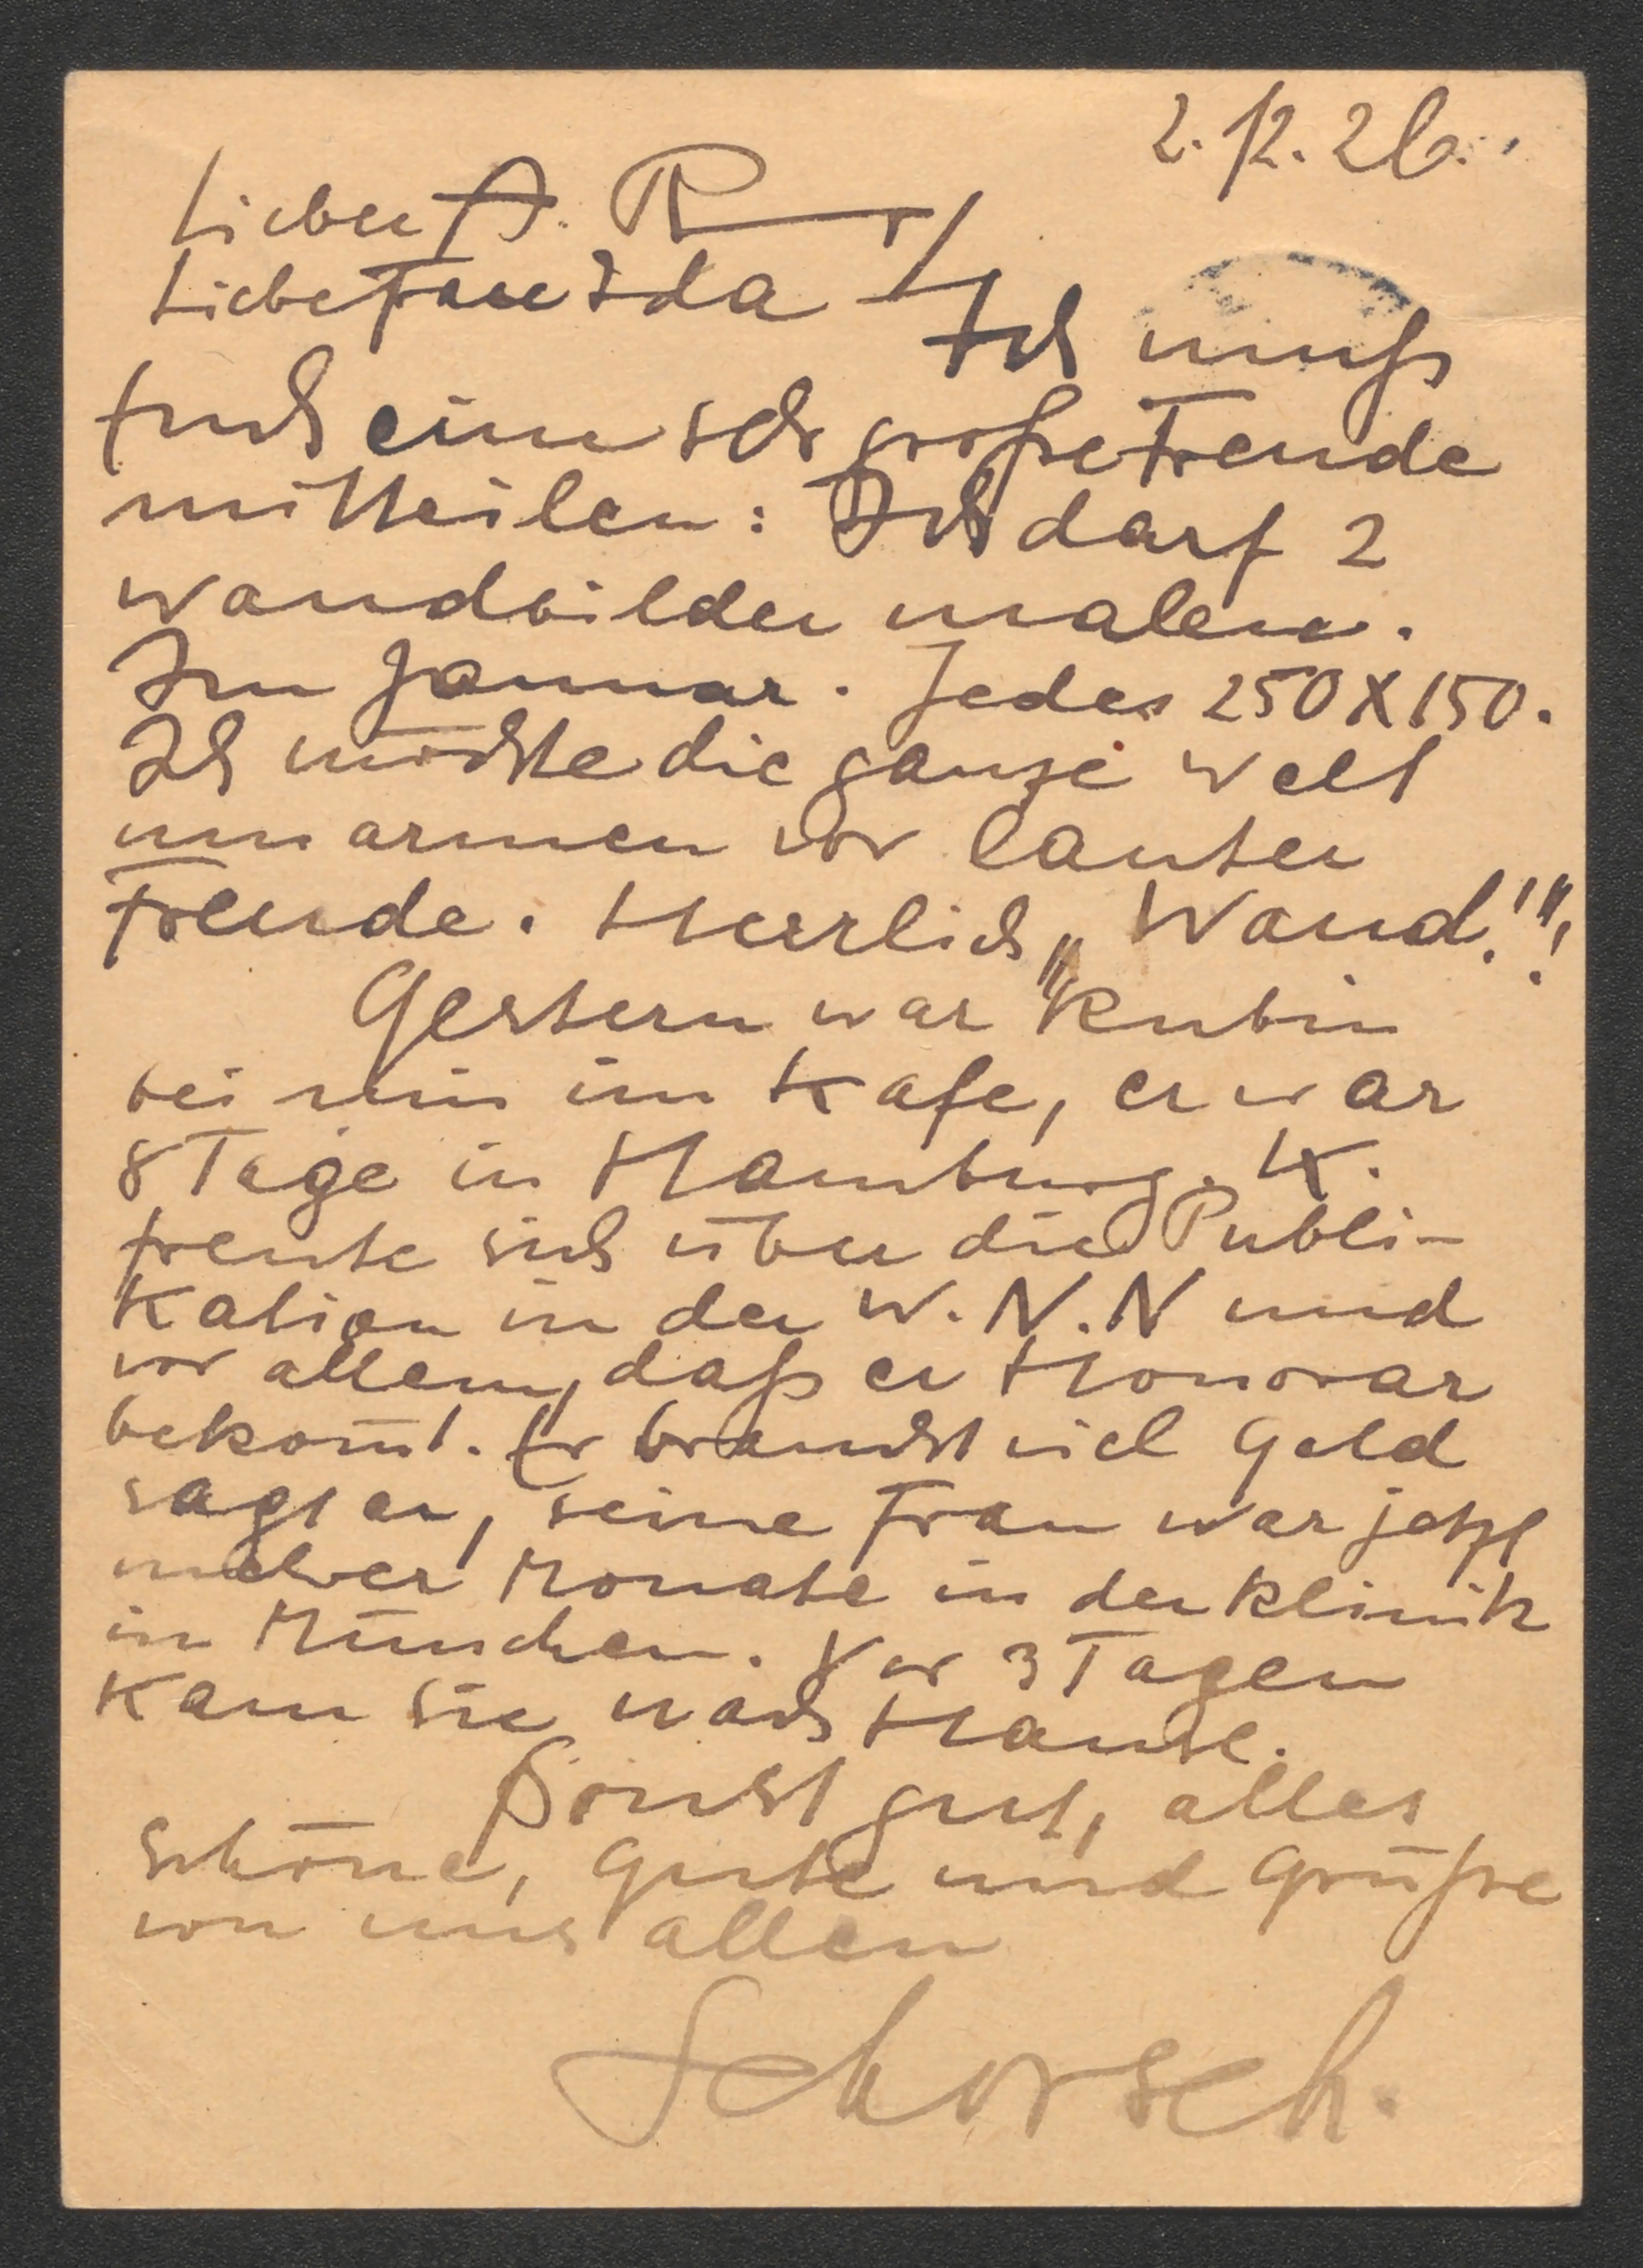 2. 12. 26.
Lieber A. R.
Liebe Frau Ida
Ich muß
Euch eine sehr große Freude
mitteilen: Ich darf 2
Wandbilder malen.
Im Januar. Jedes 250 X 150.
Ich möchte die ganze Welt
umarmen vor lauter
Freude. Herrlich „Wand!"!
Gestern war Kubin
bei mir im Kafe, er war
8 Tage in Hamburg. K.
freute sich über die Publi-
kation in der W. N. N und
vor allem, daß er Honorar
bekom̄t. Er braucht viel Geld
sagt er, seine Frau war jetzt
mehrer Monate in der Klinik
in München. Vor 3 Tagen
kam sie nach Hause.
Sonst gut, alles
Schöne, Gute und Grüße
von uns allen
Schorsch.